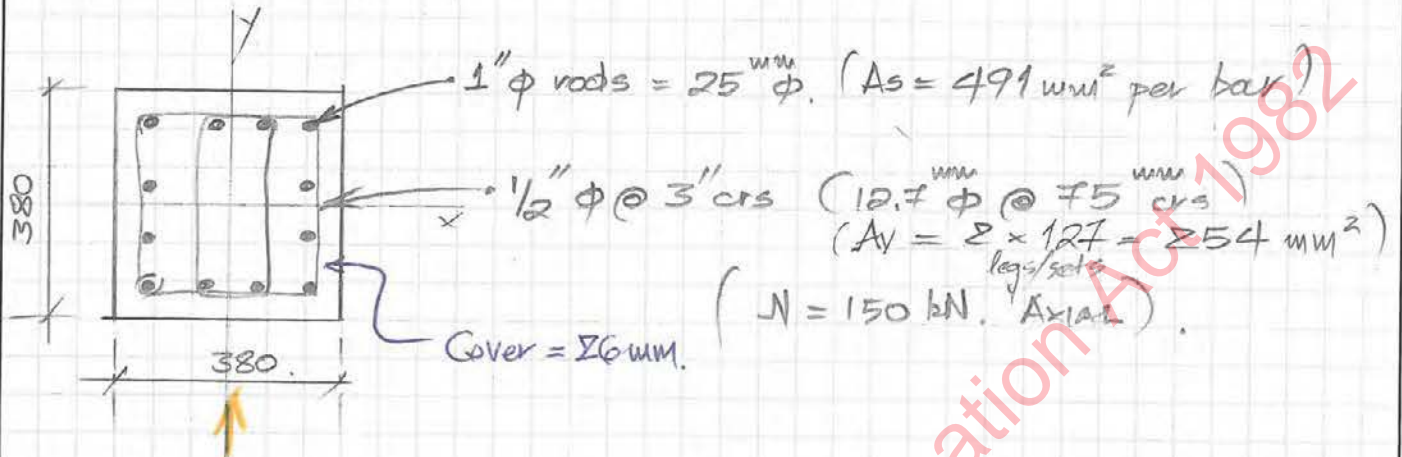 y
1"ϕ rods = 25 mm ϕ. (As = 491 mm² per bar)
1/2" ϕ @ 3" crs (12.7 mm ϕ @ 75 mm crs)
x
(Av = 2 × 127 = 254 mm²)
legs/sets
(N = 150 kN. "Axial").
Cover = 26 mm.
380
380.
ation Act 1982